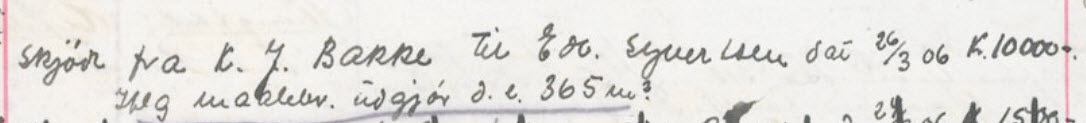 Skjöde fra K. J. Bakke til Edv. Syvertsen dat 26/3 06 K. 10000-.
Ifлg maalebr. üdgjör d. e. 365 m²